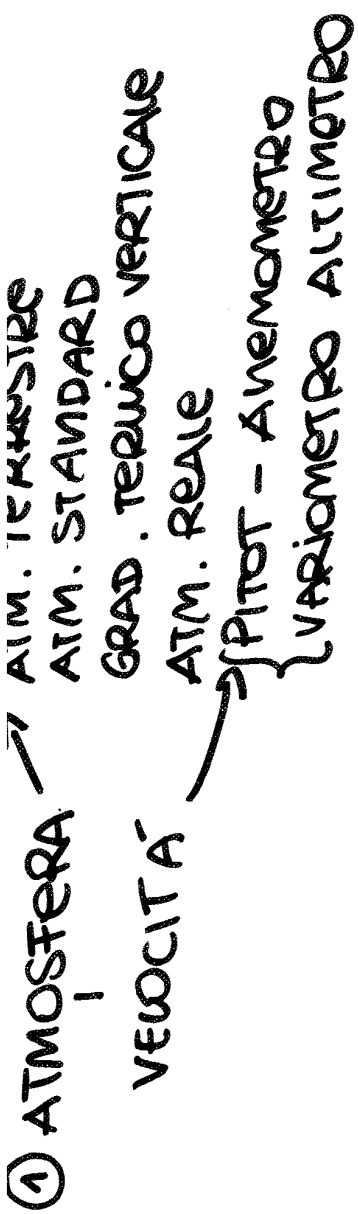 ① ATMOSFERA
-
VELOCITÀ
ATM. TERRESTRE
ATM. STANDARD
GRAD. TERMICO VERTICALE
ATM. REALE
PITOT - ANEMOMETRO
VARIOMETRO ALTIMETRO